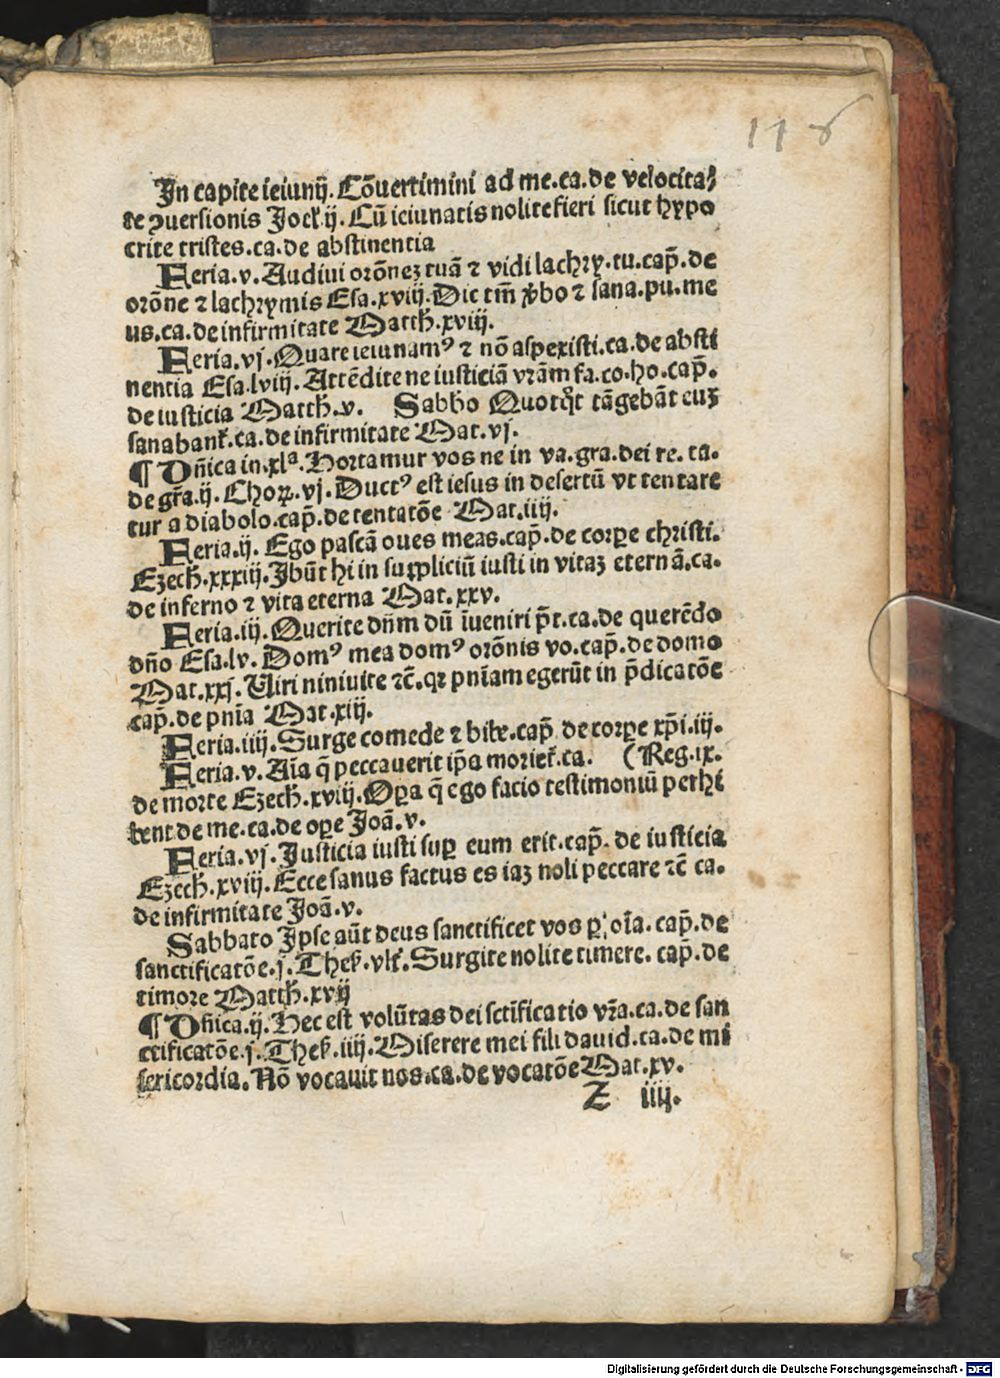 118
In capite ieiunij. Cõuertimini ad me.ca.de velocita⸗
te ꝯuersionis Joel̃.ij. Cũ ieiunatis nolite fieri sicut hypo
crite tristes.ca.de abstinentia
Feria.v. Audiui orõnez tuã ⁊ vidi lachry.tu.cap̃.de
orõne ⁊ lachrymis Esa.xviij. Dic tm̃ ꝟbo ⁊ sana.pu.me
us.ca.de infirmitate Matth̃.xviij.
Feria.vj. Quare ieiunamꝰ ⁊ nõ aspexisti.ca.de absti
nentia Esa.lviij. Attẽdite ne iusticiã vr̃am fa.co.ho.cap̃.
de iusticia Matth̃.v. Sabb̃o Quotq̃t tãgebãt euz
sanabant̃.ca.de infirmitate Mat.vj.
¶ Dñica in.xlᵃ. Hortamur vos ne in va.gra.dei re. ca.
de gr̃a.ij. Choꝝ.vj. Ductꝰ est iesus in desertũ vt tentare
tur a diabolo.cap̃.de tentatõe Mat.iiij.
Feria.ij. Ego pascã oues meas.cap̃.de corꝑe christi.
Ezech̃.xxxiij. Ibũt hi in suppliciũ iusti in vitaz eternã.ca.
de inferno ⁊ vita eterna Mat.xxv.
Feria.iij. Querite dñm dũ ĩueniri p̃t.ca.de querẽdo
dño Esa.lv. Domꝰ mea domꝰ orõnis vo.cap̃.de domo
Mat.xxj. Viri niniuite ⁊c̃.qꝛ pñiam egerũt in p̃dicatõe
cap̃.de pñia Mat.xij.
Feria.iiij. Surge comede ⁊ bibe.cap̃ de corꝑe xp̃i.iij.
Feria.v. Aĩa q̃ peccauerit ip̃a moriet̃.ca. (Reg.ix.
de morte Ezech̃.xviij. Oꝑa q̃ ego facio testimoniũ perhi
bent de me.ca.de oꝑe Joã.v.
Feria.vj. Justicia iusti suꝑ eum erit.cap̃. de iusticia
Ezech̃.xviij. Ecce sanus factus es iaz noli peccare ⁊c̃ ca.
de infirmitate Joã.v.
Sabbato Ipse aũt deus sanctificet vos ꝑ oĩa. cap̃.de
sanctificatõe.j. Thes̃.vlt̃. Surgite nolite timere. cap̃.de
timore Matth̃.xvij
¶ Dñica.ij. Hec est volũtas dei sctĩficatio vr̃a.ca.de san
ctificatõe.j. Thes̃.iiij. Miserere mei fili dauid.ca.de mi
sericordia. Nõ vocauit nos.ca.de vocatõe Mat.xv.
Z iiij.
Digitalisierung gefördert durch die Deutsche Forschungsgemeinschaft - DFG